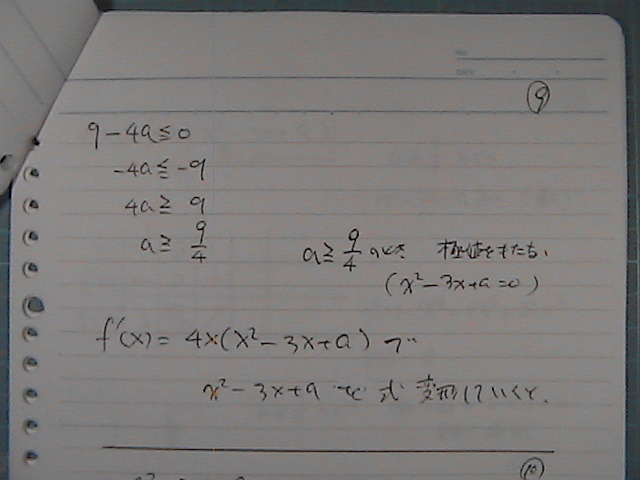 ⑨
9 - 4a ≦ 0
-4a ≦ -9
4a ≧ 9
a ≧ 9/4
a ≧ 9/4 のとき 極値をもたち、
(x² - 3x + a = 0)
f'(x) = 4x(x² - 3x + a) で
x² - 3x + a を 式 変形していくと、
⑩